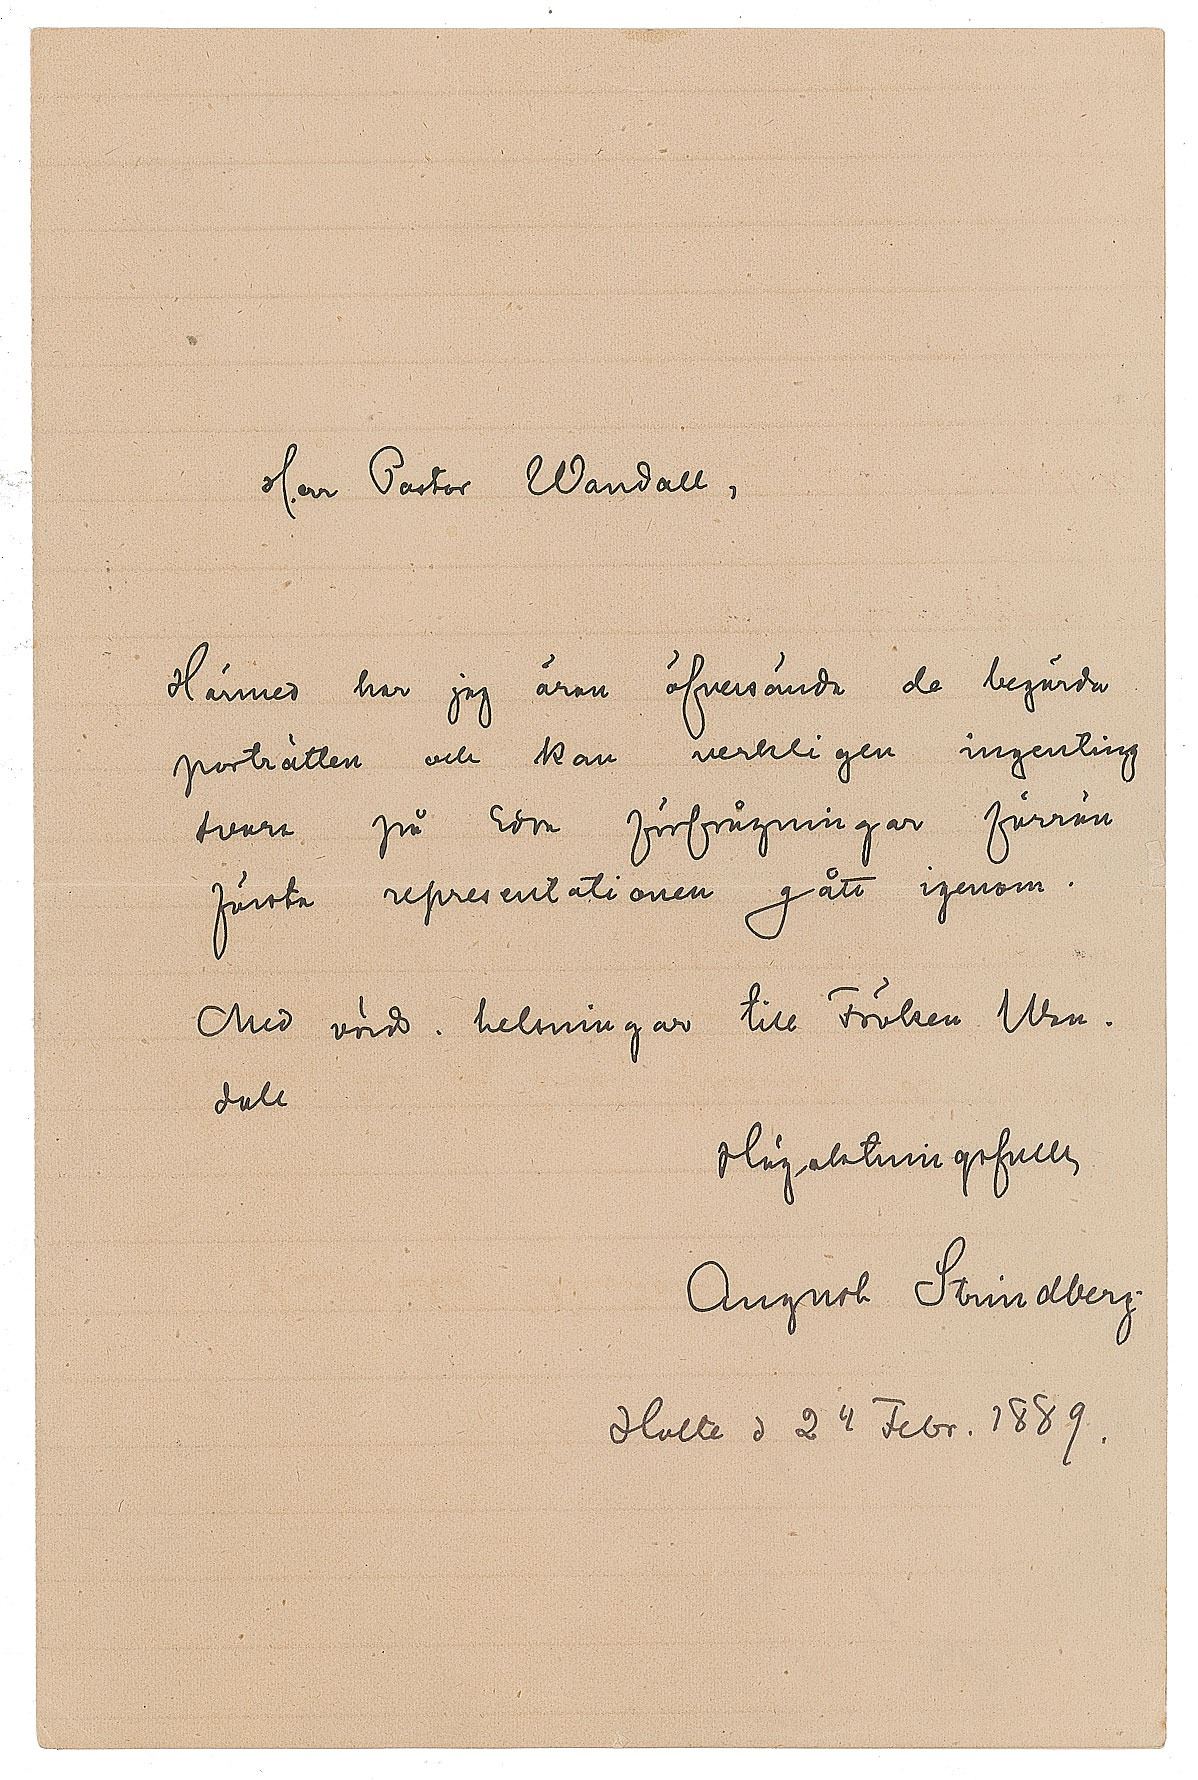 Herr Pastor Wandall,
Härmed har jag äran öfversända de begärda
porträtten och kan verkligen ingenting
svara på Edra förfrågningar förrän
första representationen gått igenom.
Med vörds. helsningar till Fröken Wan-
dall
Högaktningsfullt
August Strindberg
Holte d 24 Febr. 1889.